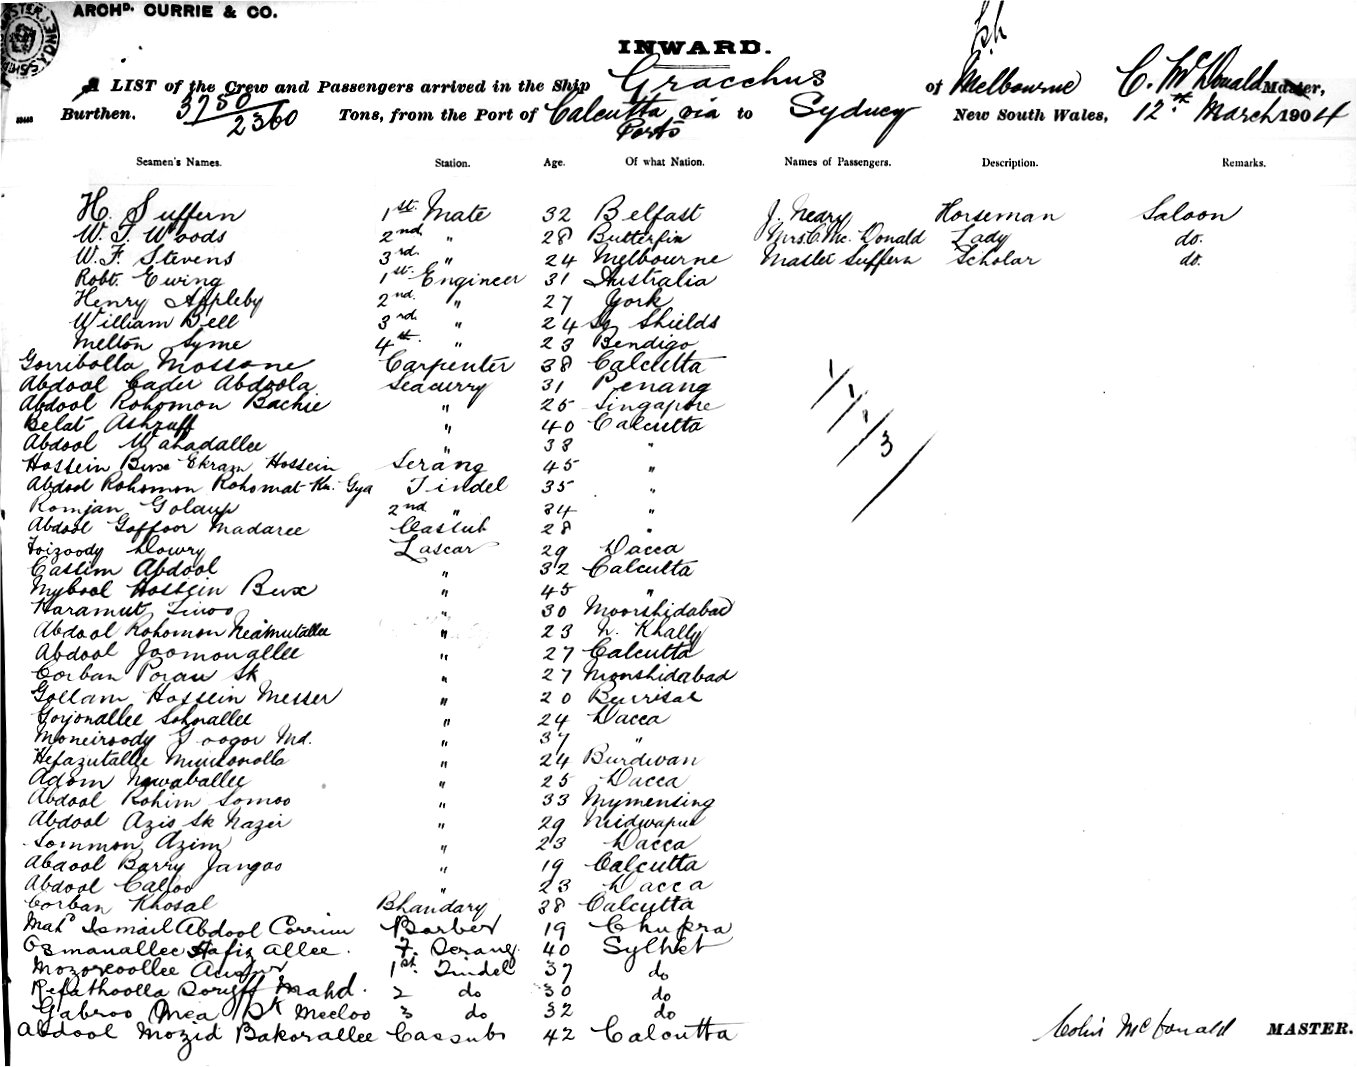 ARCHD. CURRIE & CO.
INWARD.
A LIST of the Crew and Passengers arrived in the Ship Gracchus of Melbourne C. McDonald Master,
Burthen. 3750/2360 Tons, from the Port of Calcutta via Ports to Sydney New South Wales, 12th March 1904
Seamen's Names. Station. Age. Of what Nation. Names of Passengers. Description. Remarks.
H. Suffern 1st Mate 32 Belfast J. Neary Horseman Saloon
W. T. Woods 2nd " 28 Mrs. C. Mc. Donald Lady do.
W. F. Stevens 3rd " 24 Melbourne Master Suffern Scholar do.
Robt. Ewing 1st Engineer 31 Australia
Henry Appleby 2nd " 27 York
William Bell 3rd " 24 So Shields
Melton Syme 4th " 23 Bendigo
Gorribolla Mossone Carpenter 38 Calcutta
Abdool Cader Abdoola Seacurry 31 Penang
Abdool Rohomon Bachie " 25 Singapore
Belat Ashruff " 40 Calcutta
Abdool Wahadallee " 38 "
Hossein Bux Ekram Hossein Serang 45 "
Abdool Rohomon Rohomat Kn. Gya Tindel 35 "
Romjan Golaup 2nd " 34 "
Abdool Goffoor Madaree Cassub 28 "
Foizoody Dowry Lascar 29 Dacca
Cassim Abdool " 32 Calcutta
Mybool Hossein Bux " 45 "
Haramut Tinoo " 30 Moorshidabad
Abdool Rohomon Neamutallee " 23 N. Khally
Abdool Joomonallee " 27 Calcutta
Corban Poran Sk " 27 Moorshidabad
Gollam Hossein Messer " 20 Burrisal
Gorjonallee Sohorallee " 24 Dacca
Moneiroody Googor Md. " 37 "
Hefazutallee " 24 Burdwan
Adom Nowaballee " 25 Dacca
Abdool Rohim Somoo " 33 Mymensing
Abdool Azis Sk Nazir " 29 Midnapur
Sommon Azim " 23 Dacca
Abdool Barry Jangoo " 19 Calcutta
Abdool Calloo " 23 Dacca
Corban Khosal Bhandary 38 Calcutta
Mahd Ismail Abdool Corrim Barber 19 Chupra
Osmanallee Hafiz Allee. F. Serang. 40 Sylhet
Mozoroollee 1st. Tindel 37 do
Refathoolla Soruff Mahd. 2 do 30 do
Gabroo Mea Sk Meeloo 3 do 32 do
Abdool Mozid Bakorallee Cassub 42 Calcutta
1/1/1/3/
Colin McDonald MASTER.